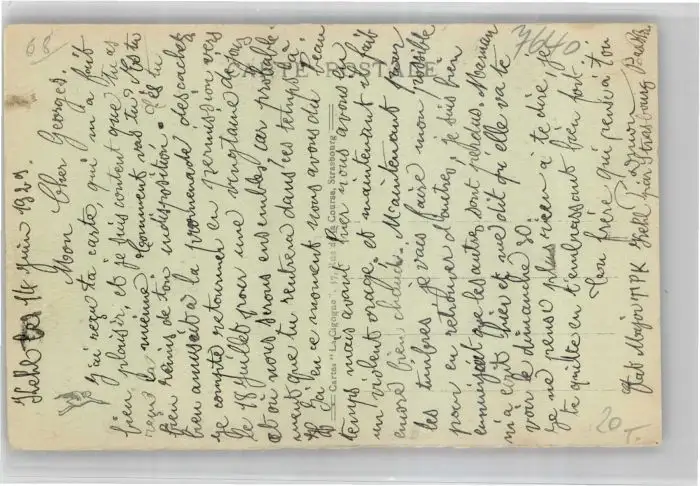 Kehl le 14 Juin 1929.
Mon Cher Georges.
J'ai reçu ta carte, qui m'a fait
bien plaisir, et je suis content que tu as
reçu la mienne. Comment vas tu? Es tu
bien remis de ton indisposition. t'es tu
bien amusait à la promenade des caches,
je compte retourner en permission vers
le 18 juillet pour une vingtaine de jours
et où nous serons ensembles car probable-
ment que tu rentrera dans ces temps là.
Ici en ce moment nous avons du beau
temps mais avant hier nous avons eu
un violent orage, et maintenant il fait
encore bien chaud. Maintenant pour
les timbres je vais faire mon possible
pour en retrouver d'autres, je suis bien
ennuyait que les autres sont perdus. Maman
m'a écrit hier et me dit qu'elle va te
voir le dimanche 30.
Je ne pense plus rien à te dire, je
te quitte en t'embrassant bien fort.
Ton frère qui pense à toi
Etat Major TIPK Kehl Près Strasbourg
CARTE POSTALE
Cartes "La Cigogne", 17, Rue de la Course, Strasbourg
7640
20
T.